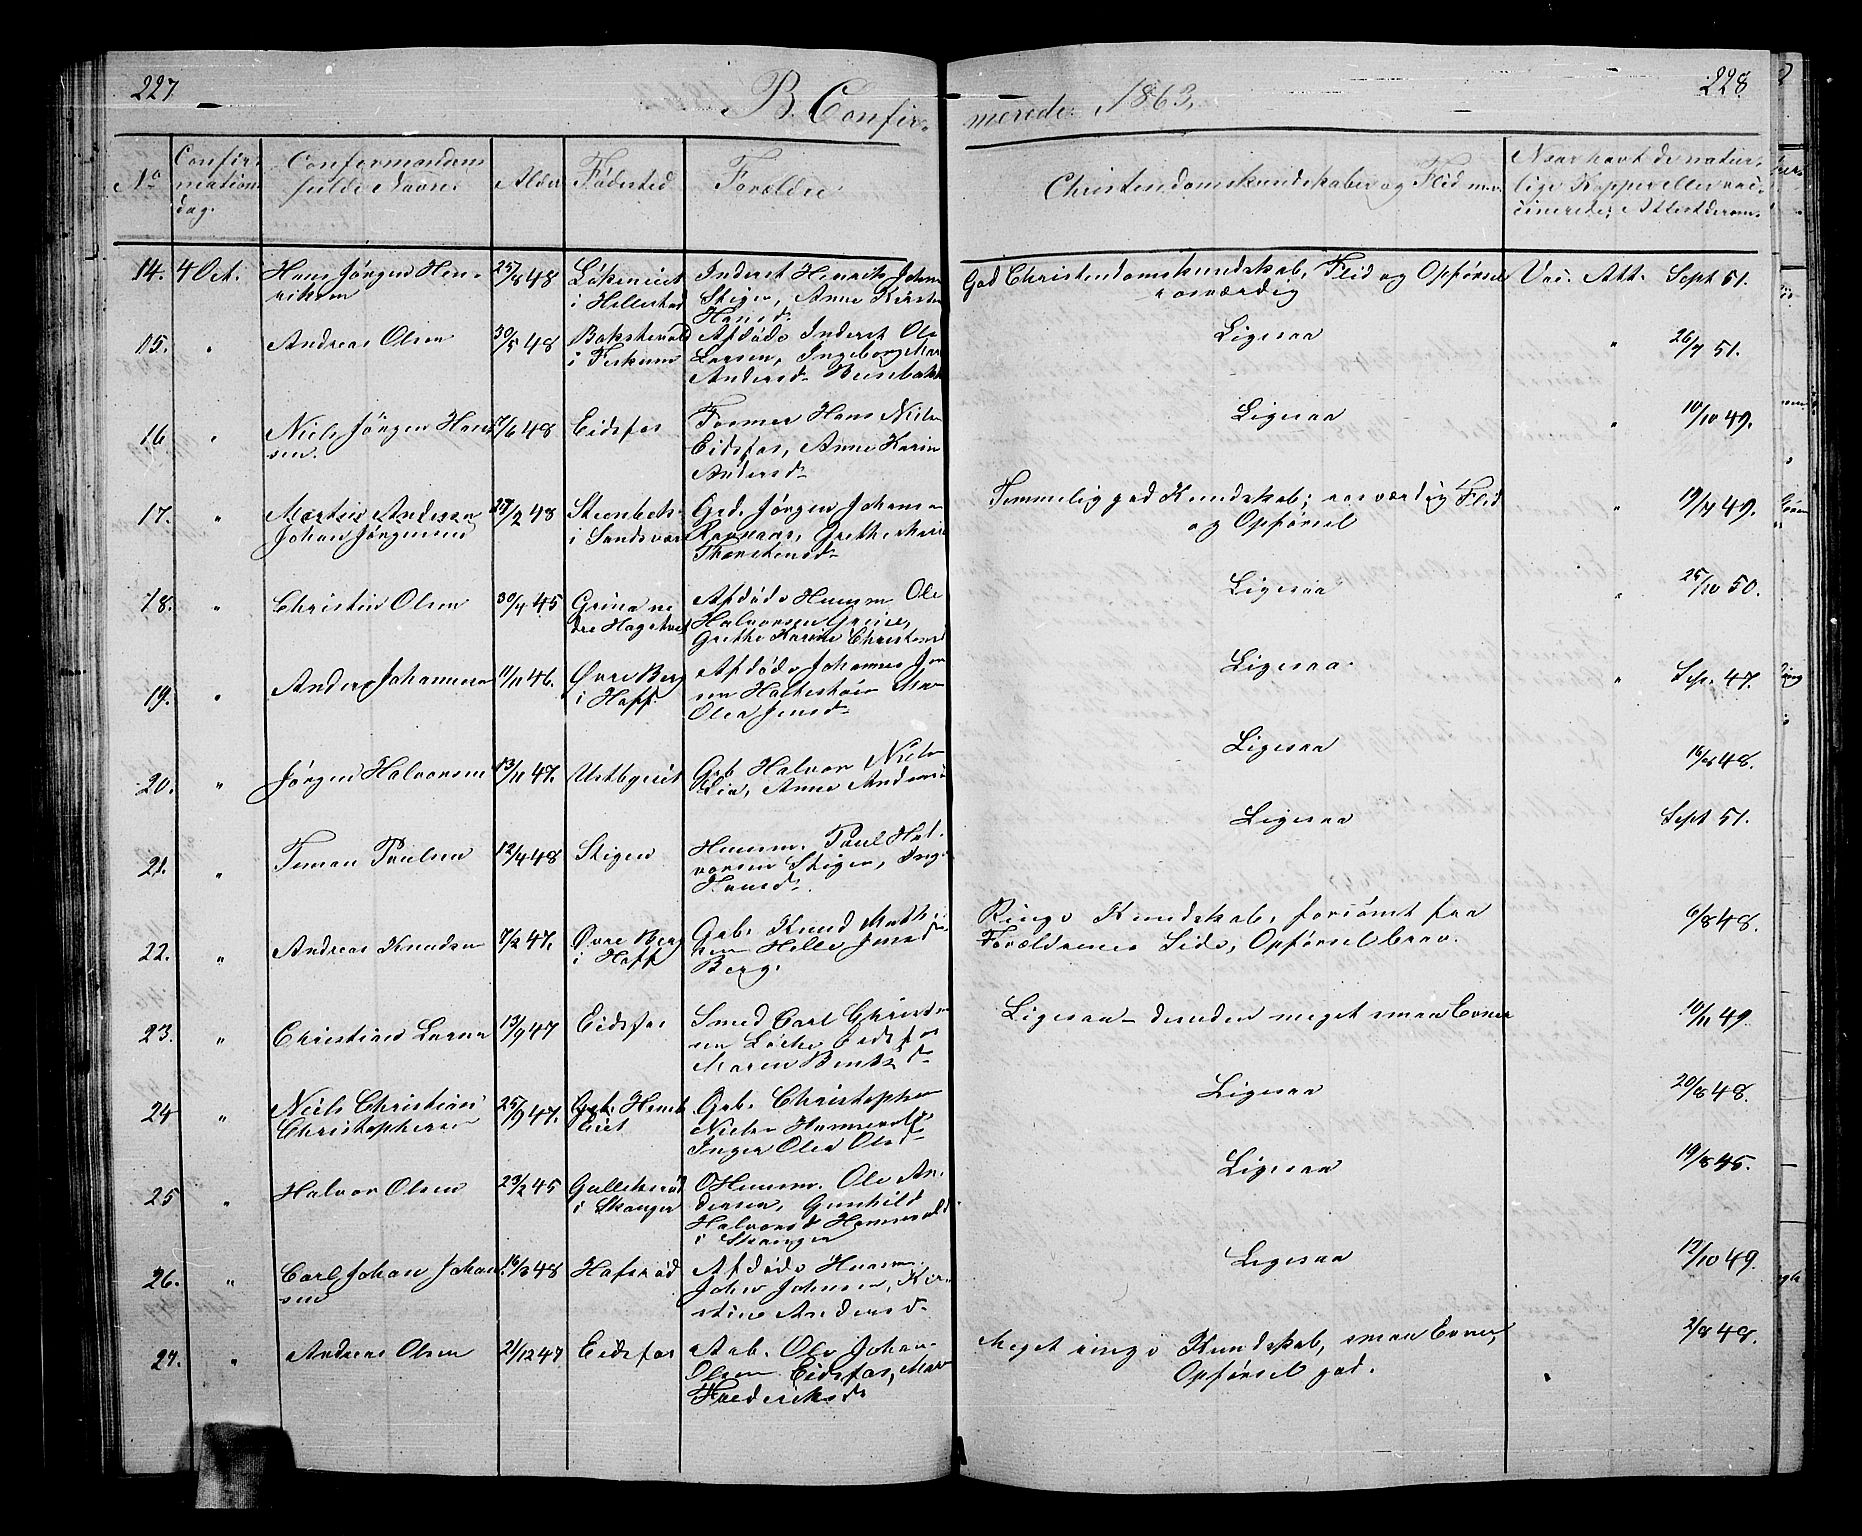 227
B. Confir-
merede. 1863.
228
No
Confir-
mations
dag.
Confirmandens
fulde Navne
Alder
Fødested
Forældre
Christendomskundskaber og Flid m.v.
Naar havt de natur-
lige Kopper eller vac-
cinerede; Attest derom.
14. 4 Oct. Hans Jørgen Hen-
riksen
25/8 48
i Hellestad
Inderst Henrik Johans
Stigen, Anne Kirstin
Hansd.
God Christendomskundskab, Flid og Opførsel
rosværdig
Vac. Att. Sept 51.
15. " Andreas Olsen
30/5 48
i Fiskum
Afdøde Inderst Ole
Larsen, Ingeborg Mar
Andersd.
Ligesaa
" 26/7 51.
16. " Niels Jørgen Han
sen.
17/6 48
Eidsfos
Former Hans Niels
Eidsfos, Anne Karin
Andersd.
Ligesaa
" 10/10 49.
17. " Martin Andersen
Johan Jørgensen
28/2 48
i Sandsvær
Grd. Jørgen Johans
Grethe Marie
Thorstensd.
Temmelig god Kundskab; rosværdig Flid
og Opførsel
" 19/7 49.
18. " Christin Olsen
30/4 45
Grina ne
dre Hagetvet
Afdøde Huusm Ole
Halvorsen
Grethe Karine Christens
Ligesaa
" 25/10 50.
19. " Anders Johannesen
11/11 46.
Øvre Berg
i Hoff.
Afdøde Johannes Jen
sen
Olea Jensd.
Ligesaa.
" Sep. 47.
20. " Jørgen Halvorsen
13/11 47.
Grb Halvor Niels
Anne Anders
Ligesaa
16/8 48.
21. " Paulsen
12/4 48
Stigen
Huusm. Paul Hal-
vorsen Stigen, Ing
Hansd.
Ligesaa
Sept 51.
22. " Andreas Knudsen
7/2 47.
Øvre Berg
i Hoff
Grb. Knud Math-
sen Helle Jensd
Berg.
Ringe Kundskab, forsømt fra
Forældrenes Side, Opførsel brav.
6/8 48.
23. " Christian Larsen
13/9 47
Eidsfos
Smed Carl Christen
sen Løcke Eidsfos
Maren Bentsd.
Ligesaa – desuden meget smaa Evner
10/11 49.
24 " Niels Christian
Christophersen
25/9 47.
eiet
Grb. Christopher
Niels Hemsevold
Inger Olea Olsd.
Ligesaa
20/8 48.
25 " Halvor Olsen
23/2 45
i Skauger
Huusm. Ole An-
dersen, Gunhild
Halvorsd Hemsevold
i Skauger
Ligesaa
19/8 45.
26. " Carl Johan Johan
sen
16/3 48
Hafsrød
Afdøde Huusm.
Johan Johnsen, Kir-
stine Andersd.
Ligesaa
12/10 49.
27. " Andreas Olsen
21/12 47
Eidsfos
Arb. Ole Johan-
Olsen Eidsfos, Mar
Frederiksd.
Meget ringe Kundskab, smaa Evner,
Opførsel god.
3/8 48.